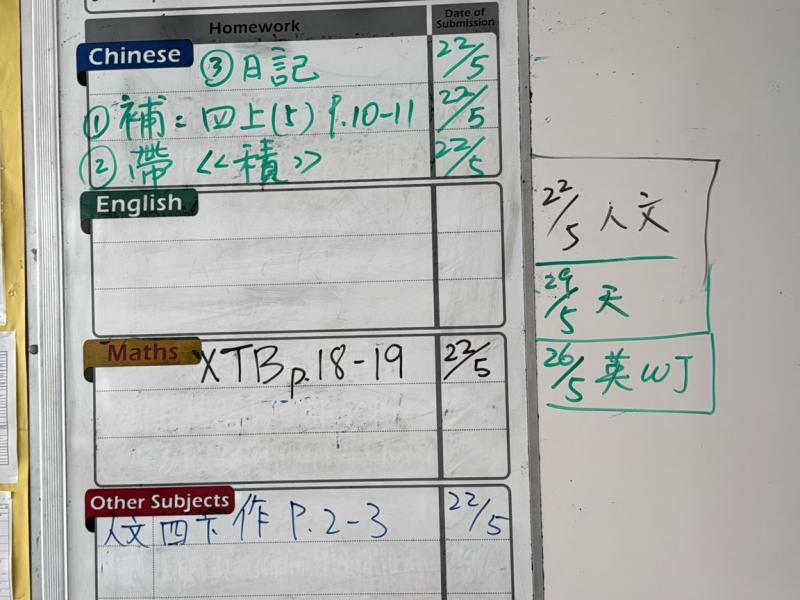 Homework
Date of Submission
Chinese
③日記 22/5
①補：四上(5) P.10-11 22/5
②帶《積》 22/5
English
Maths
XTB p.18-19 22/5
Other Subjects
人文四下作 P.2-3 22/5
22/5 人文
29/5 天
26/5 英WJ